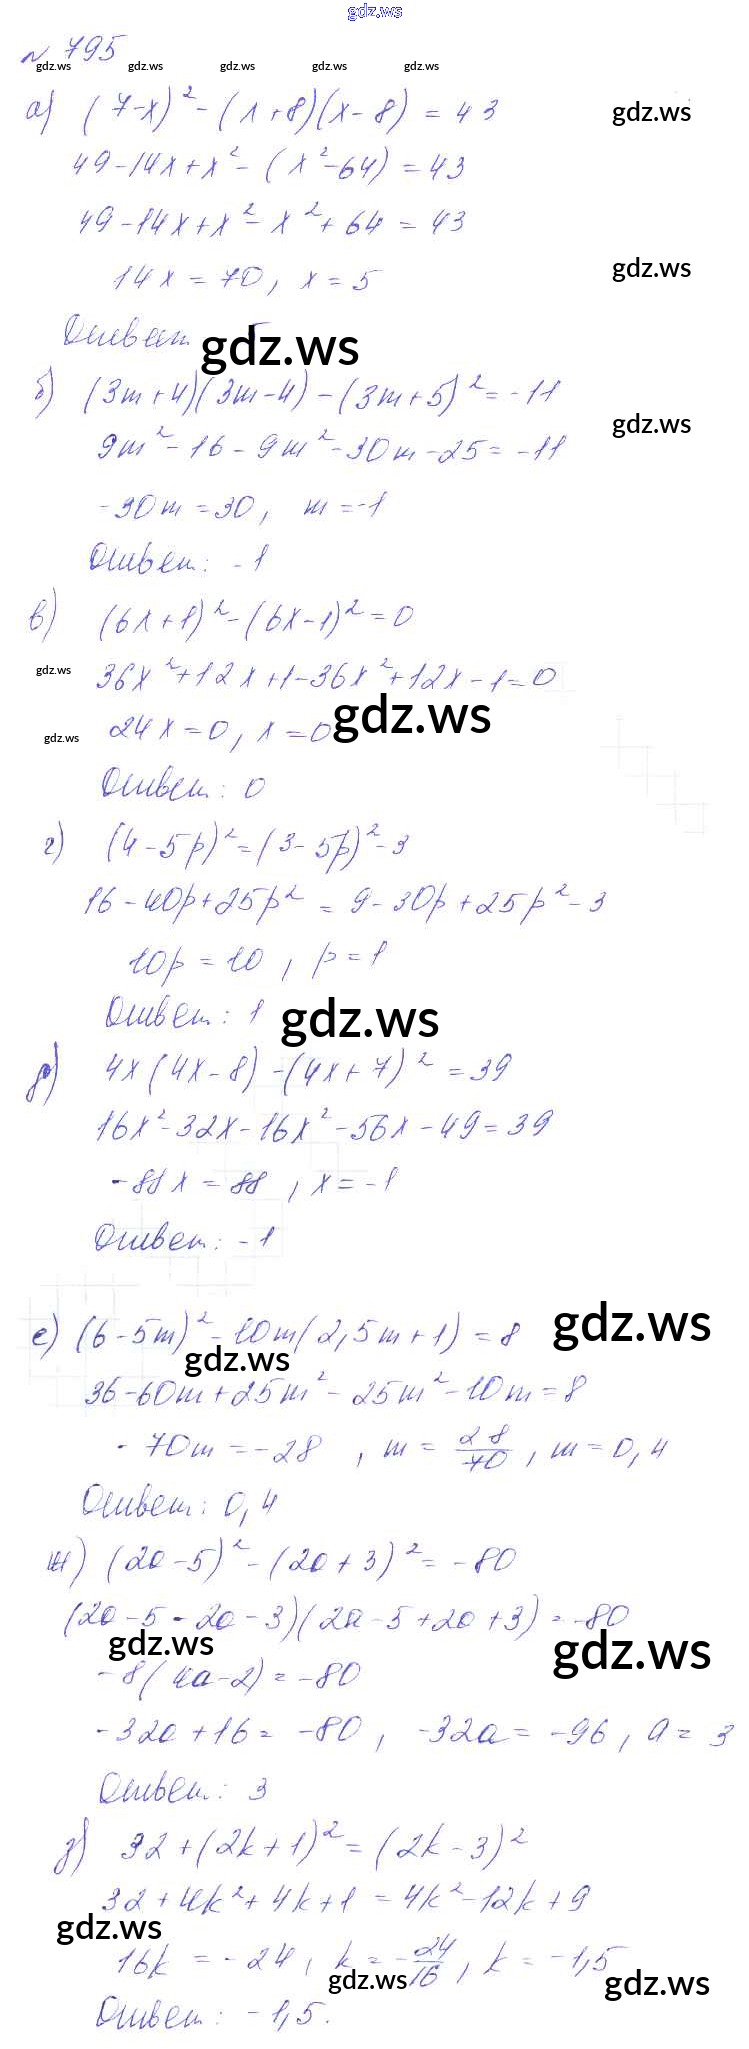 gdz.ws
№ 795
gdz.ws gdz.ws gdz.ws gdz.ws gdz.ws
а) (7-x)² - (x+8)(x-8) = 43 gdz.ws
49-14x+x² - (x²-64) = 43
49-14x+x²-x²+64 = 43
14x = 70, x = 5 gdz.ws
Ответ 5 gdz.ws
б) (3m+4)(3m-4) - (3m+5)² = -11
9m²-16-9m²-30m-25 = -11 gdz.ws
-30m = 30, m = -1
Ответ: -1
в) (6x+1)² - (6x-1)² = 0
gdz.ws 36x²+12x+1-36x²+12x-1=0
gdz.ws 24x=0, x=0 gdz.ws
Ответ: 0
г) (4-5p)² = (3-5p)² - 3
16-40p+25p² = 9-30p+25p²-3
10p = 10, p = 1
Ответ: 1 gdz.ws
д) 4x(4x-8) - (4x+7)² = 39
16x²-32x-16x²-56x-49=39
-88x = 88, x = -1
Ответ: -1
е) (6-5m)² - 10m(2,5m+1) = 8 gdz.ws
gdz.ws
36-60m+25m²-25m²-10m=8
-70m = -28, m = 28/70, m = 0,4
Ответ: 0,4
ж) (2a-5)² - (2a+3)² = -80
(2a-5-2a-3)(2a-5+2a+3) = -80
gdz.ws gdz.ws
-8(4a-2) = -80
-32a+16 = -80, -32a = -96, a = 3
Ответ: 3
з) 32+(2k+1)² = (2k-3)²
32+4k²+4k+1 = 4k²-12k+9
gdz.ws
16k = -24, k = -24/16, k = -1,5
gdz.ws gdz.ws
Ответ: -1,5.